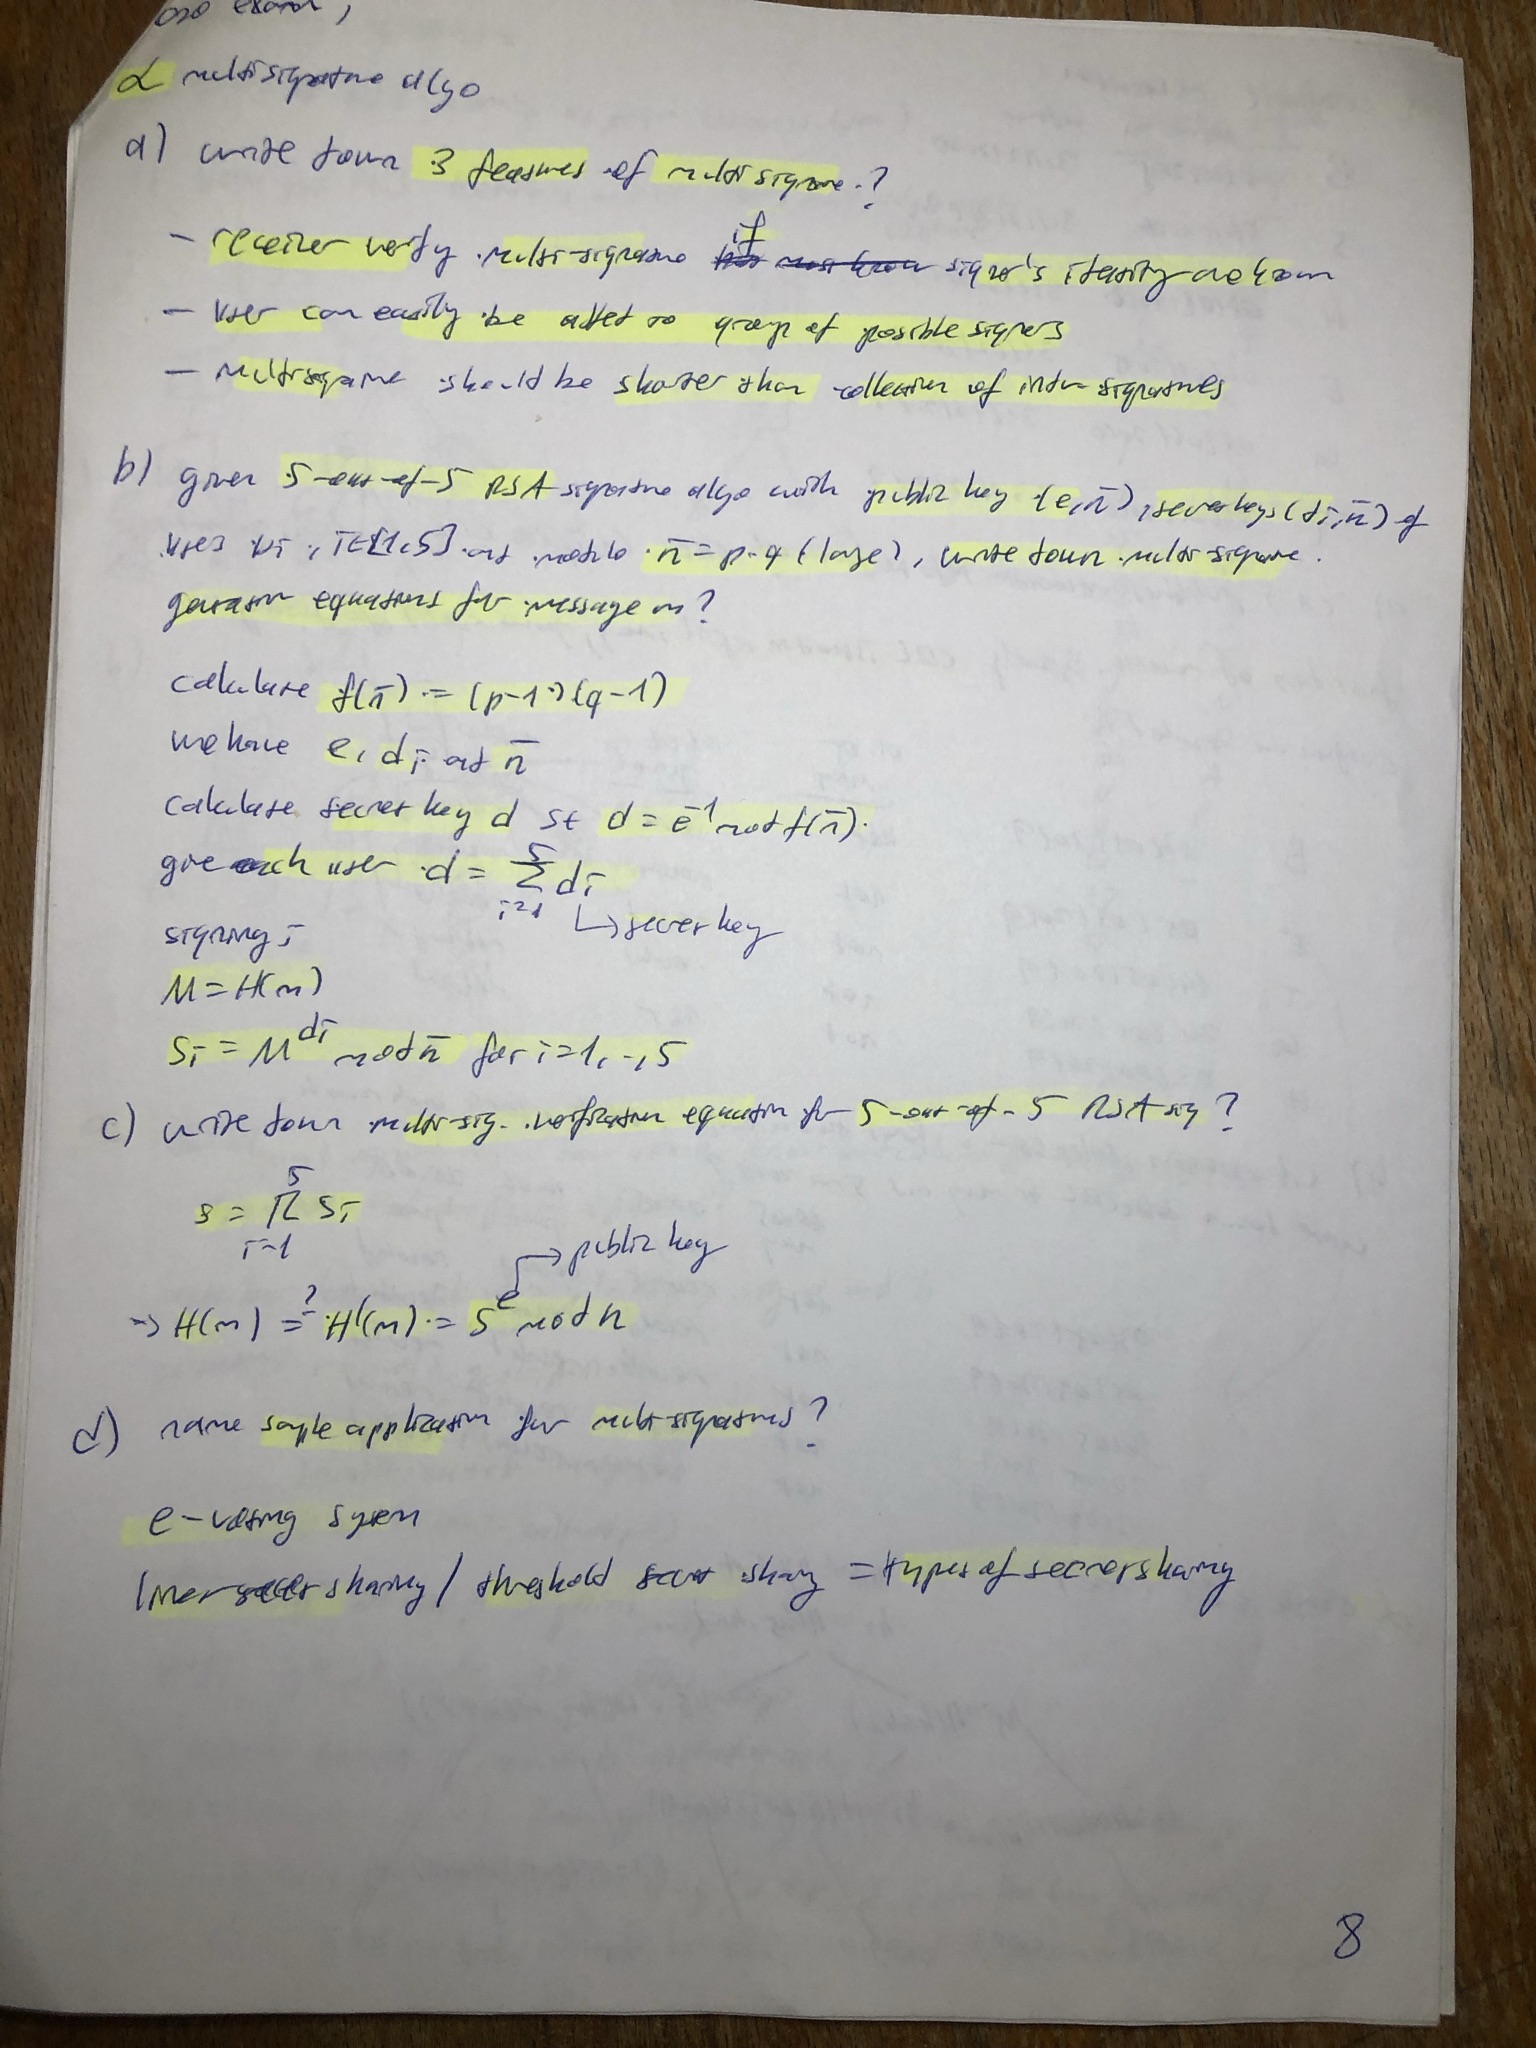 exam,
α multisignature algo
a) write down 3 features of multi signature?
- receiver verify multi-signature if signer's identity are known
- user can easily be added to group of possible signers
- multisignature should be shorter than collection of indiv signatures
b) given 5-out-of-5 RSA signature algo with public key (e, n̄), secret keys (di, n̄) of
users ui, i∈[1,5] and modulo n̄ = p·q (large), write down multi-signature
generation equations for message m?
calculate f(n̄) = (p-1)(q-1)
we have e, di and n̄
calculate secret key d st d = e⁻¹ mod f(n̄).
give each user d = 5 Σ i=1 di
↳ secret key
signing:
M = H(m)
Si = M^di mod n̄ for i=1,..,5
c) write down multi-sig. verification equation for 5-out-of-5 RSA sig?
s = 5 Π i=1 si
→ public key
→ H(m) =? H'(m) = S^e mod n
d) name sample application for multi-signatures?
e-voting system
linear secret sharing / threshold secret sharing = types of secret sharing
8